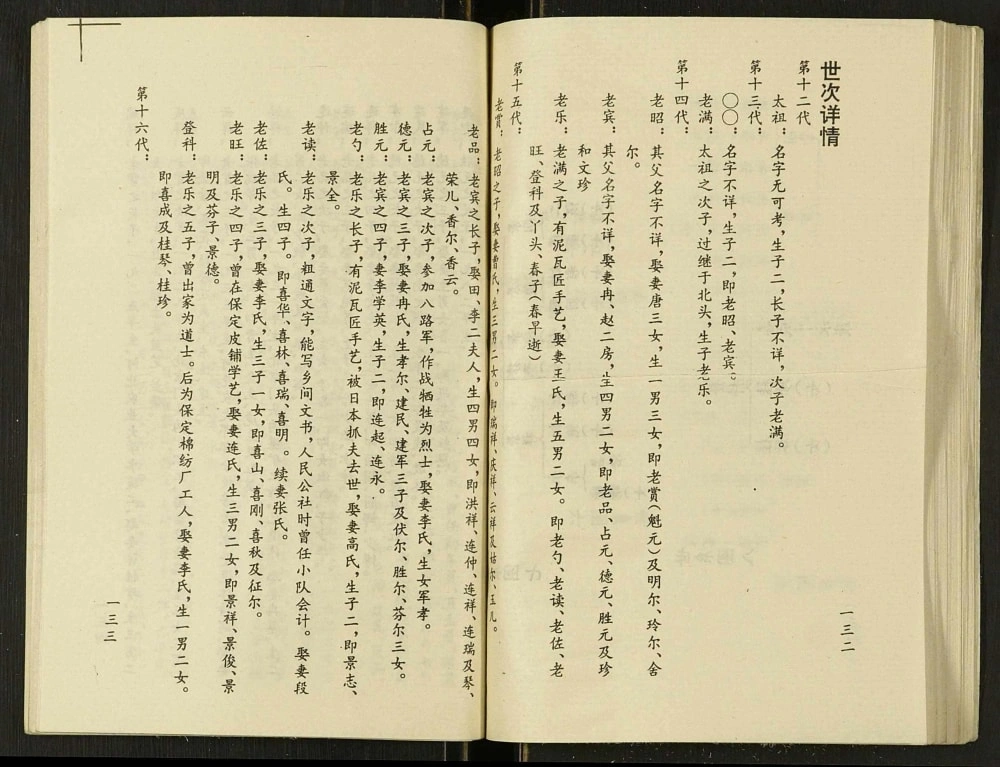 世次详情
第十二代
太祖：名字无可考，生子二，长子不详，次子老满。
第十三代：
〇〇：名字不详，生子二，即老昭、老宾。
老满：太祖之次子，过继于北头，生子老乐。
第十四代：
老昭：其父名字不详，娶妻唐三女，生一男三女，即老赏（魁元）及明尔、玲尔、舍
尔。
老宾：其父名字不详，娶妻冉、赵二房，生四男二女，即老品、占元、德元、胜元及珍
和文珍
老乐：老满之子，有泥瓦匠手艺，娶妻王氏，生五男二女。即老勺、老读、老佐、老
旺、登科及丫头、春子（春早逝）
第十五代：
老赏：老昭之子，娶妻曹氏，生三男二女。即瑞祥、庆祥、云祥及姑尔、玉儿。
一三二
老品：老宾之长子，娶田、李二夫人，生四男四女，即洪祥、连仲、连祥、连瑞及琴、
荣儿、香尔、香云。
占元：老宾之次子，参加八路军，作战牺牲为烈士，娶妻李氏，生女军孝。
德元：老宾之三子，娶妻冉氏，生孝尔、建民、建军三子及伏尔、胜尔、芬尔三女。
胜元：老宾之四子，妻李学英，生子二，即连起、连永。
老勺：老乐之长子，有泥瓦匠手艺，被日本抓夫去世，娶妻高氏，生子二，即景志、
景全。
老读：老乐之次子，粗通文字，能写乡间文书，人民公社时曾任小队会计。娶妻段
氏。生四子。即喜华、喜林、喜瑞、喜明。续妻张氏。
老佐：老乐之三子，娶妻李氏，生三子一女，即喜山、喜刚、喜秋及征尔。
老旺：老乐之四子，曾在保定皮铺学艺，娶妻连氏，生三男二女，即景祥、景俊、景
明及芬子、景德。
登科：老乐之五子，曾出家为道士。后为保定棉纺厂工人，娶妻李氏，生一男二女。
即喜成及桂琴、桂珍。
第十六代：
一三三